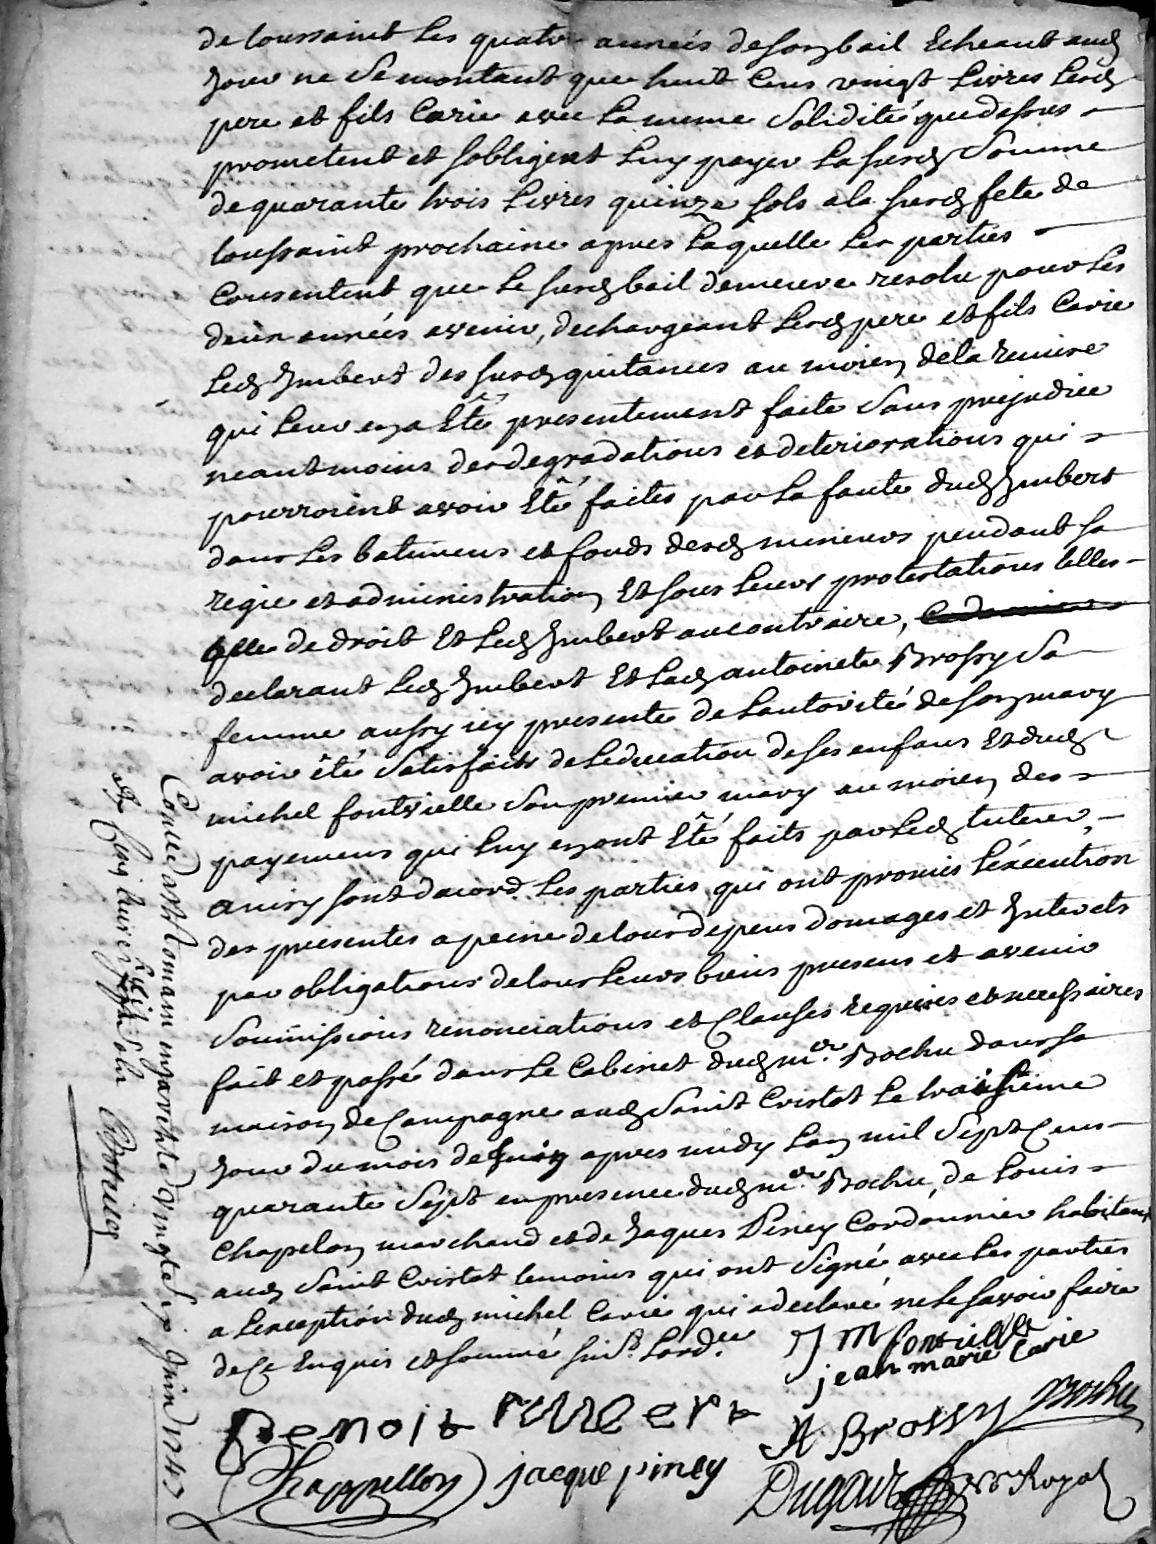 de toussaint les quatre années de son bail Echeant aud
Jour ne se montant que huit Cens vingt Livres Lesd
pere et fils Carie avec La meme Solidité que dessus
prometent et sobligent Luy payer La susd Somme
de quarante trois Livres quinze sols a la susd fete de
toussaint prochaine apres Laquelle Les parties
Consentent que Le susd bail demeure resolu pour Les
deux années avenir, dechargeant Lesd pere et fils Carie
Led Imbert des susd quitances au moien de la remise
qui Leur en a Eté presentement faite Sans prejudice
neantmoins des degradations et deteriorations qui
pourroient avoir Eté faites par La faute dud Imbert
dans Les batimens et fonds desd mineurs pendant sa
regie et administration Et sous Leurs protestations telles
que de droit Et Led Imbert au contraire,
declarant Led Imbert Et Lad antoinete Brossy Sa
femme aussy icy presente de Lautorité de son mary
avoir êté Satisfaits de Leducation de ses enfans Et dud
michel fontvielle Son premier mary au moien des
payemens qui Luy en ont Eté faits par Led tuteur,
ainsy sont dacord Les parties qui ont promis Lexecution
des presentes a peine de tous depens domages et Interets
par obligations de tous Leurs biens presens et avenir
Soumissions renonciations et Clauses requises et necessaires
fait et passé dans Le Cabinet dud mr. Rochu dans sa
maison de Campagne aud Saint Cristot Le troisieme
Jour du mois de Juin apres midy Lan mil Sept Cens
quarante Sept en presence dud mr. Rochu, de Louis
Chapelon marchand et de Jaques Piney Cordonnier habitans
aud Saint Cristot temoins qui ont Signé avec Les parties
a Lexception dud michel Carie qui a declaré ne le savoir faire
de Ce Enquis et sommé suivt. Lord.ce
J M fontvielle
jean marie Carie
Benoit imbert
A. Brossy Rochu
Chappellon jacque piney
Dugour nore Royal
Conllé a St Romain en jarêt le vingt six Juin 1747